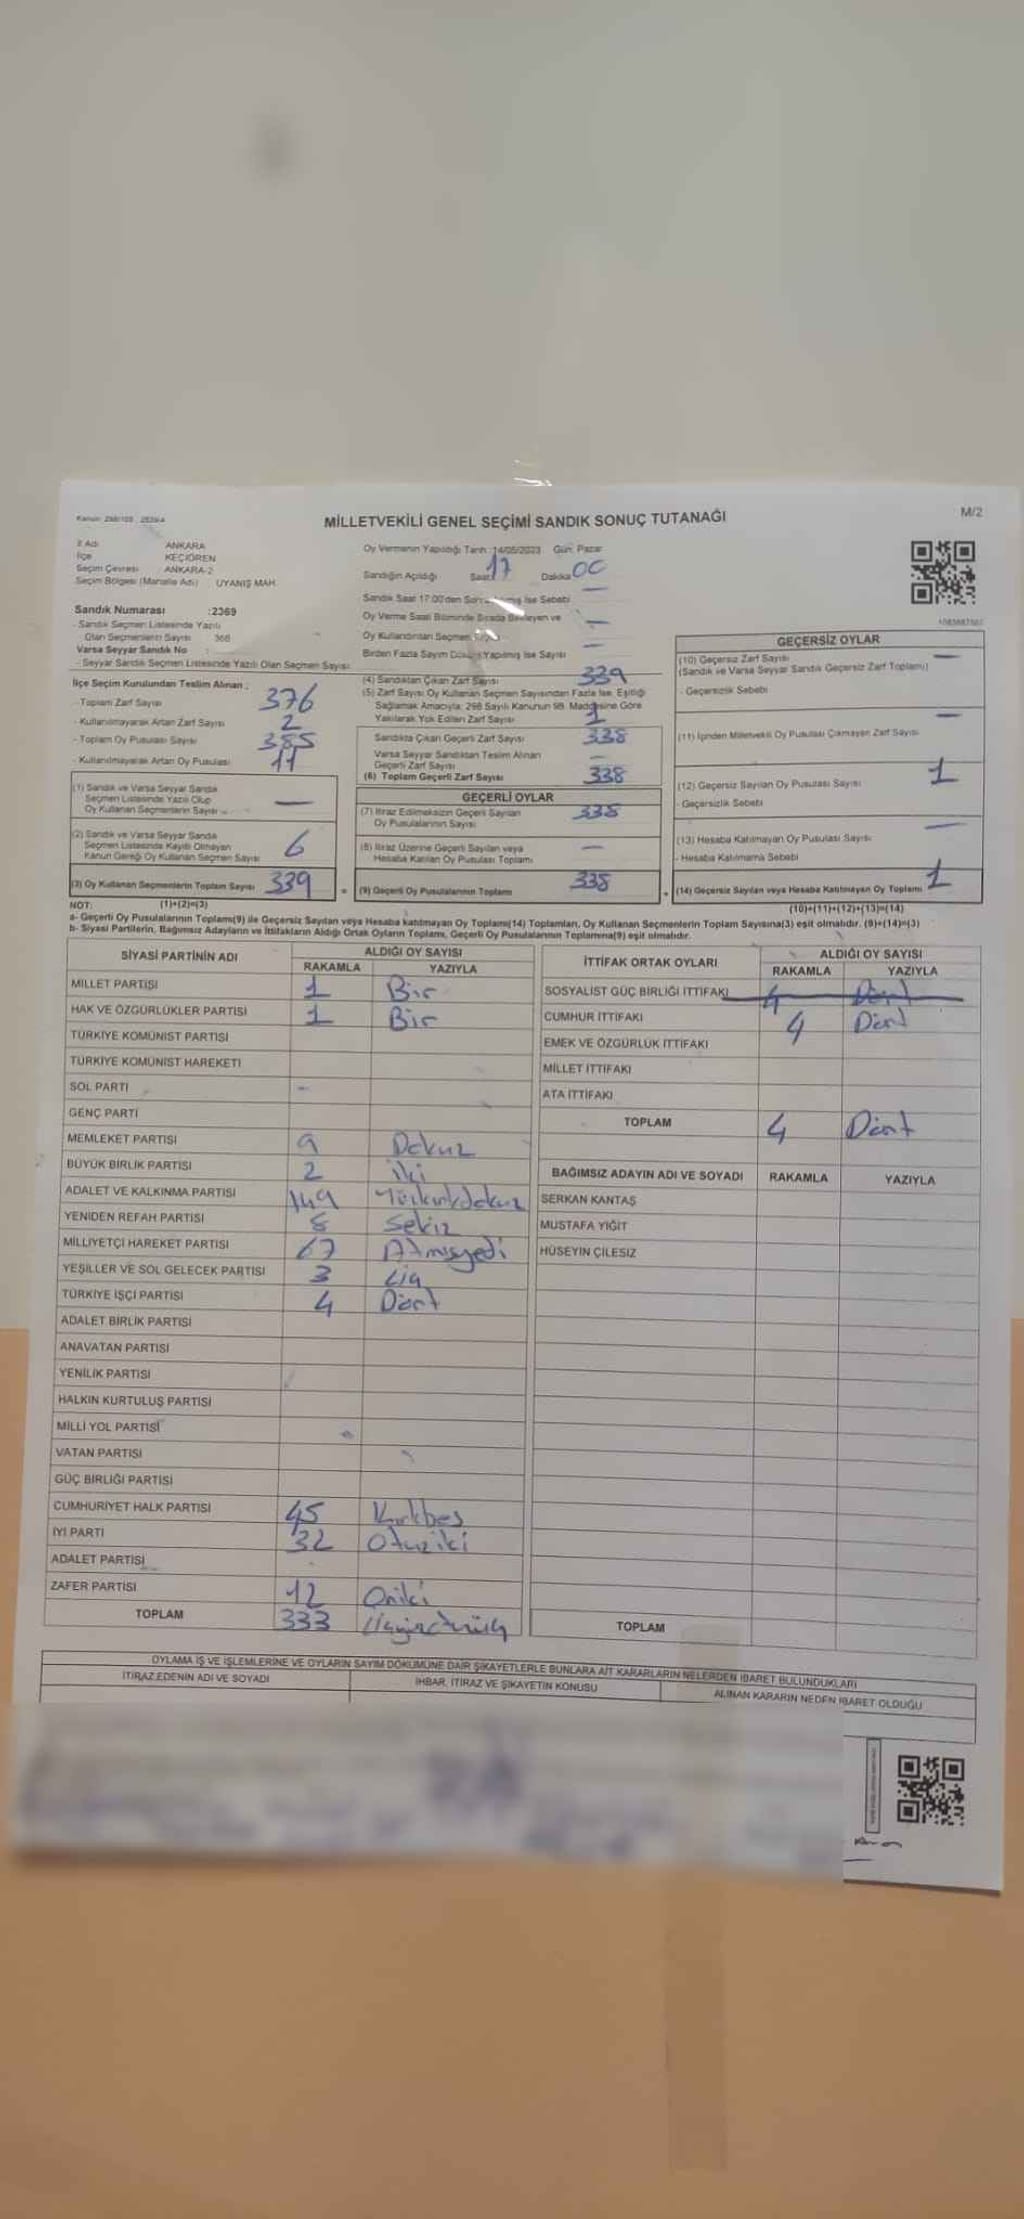 Kanun: 298/105 2839/4
MİLLETVEKİLİ GENEL SEÇİMİ SANDIK SONUÇ TUTANAĞI
M/2
İl Adı ANKARA
İlçe KEÇİÖREN
Seçim Çevresi ANKARA-2
Seçim Bölgesi (Mahalle Adı) UYANIŞ MAH.
Sandık Numarası :2369
- Sandık Seçmen Listesinde Yazılı
Olan Seçmenlerin Sayısı 368
Varsa Seyyar Sandık No :
- Seyyar Sandık Seçmen Listesinde Yazılı Olan Seçmen Sayısı
Oy Vermenin Yapıldığı Tarih :14/05/2023 Gün: Pazar
Sandığın Açıldığı Saat 17 Dakika 00
Sandık Saat 17:00'den Sonra İse Sebebi —
Oy Verme Saati Bitiminde Sırada Bekleyen ve
Oy Kullandırılan Seçmen —
Birden Fazla Sayım Döküm Yapılmış İse Sayısı —
İlçe Seçim Kurulundan Teslim Alınan :
- Toplam Zarf Sayısı 376
- Kullanılmayarak Artan Zarf Sayısı 2
- Toplam Oy Pusulası Sayısı 385
- Kullanılmayarak Artan Oy Pusulası 11
(1) Sandık ve Varsa Seyyar Sandık
Seçmen Listesinde Yazılı Olup
Oy Kullanan Seçmenlerin Sayısı —
(2) Sandık ve Varsa Seyyar Sandık
Seçmen Listesinde Kayıtlı Olmayan
Kanun Gereği Oy Kullanan Seçmen Sayısı 6
(3) Oy Kullanan Seçmenlerin Toplam Sayısı 339
(1)+(2)=(3)
(4) Sandıktan Çıkan Zarf Sayısı 339
(5) Zarf Sayısı Oy Kullanan Seçmen Sayısından Fazla İse, Eşitliği
Sağlamak Amacıyla; 298 Sayılı Kanunun 98. Maddesine Göre
Yakılarak Yok Edilen Zarf Sayısı 1
Sandıkta Çıkan Geçerli Zarf Sayısı 338
Varsa Seyyar Sandıktan Teslim Alınan
Geçerli Zarf Sayısı —
(6) Toplam Geçerli Zarf Sayısı 338
GEÇERLİ OYLAR
(7) İtiraz Edilmeksizin Geçerli Sayılan
Oy Pusulalarının Sayısı 338
(8) İtiraz Üzerine Geçerli Sayılan veya
Hesaba Katılan Oy Pusulası Toplamı —
(9) Geçerli Oy Pusulalarının Toplamı 338
GEÇERSİZ OYLAR
(10) Geçersiz Zarf Sayısı —
(Sandık ve Varsa Seyyar Sandık Geçersiz Zarf Toplamı)
- Geçersizlik Sebebi
(11) İçinden Milletvekili Oy Pusulası Çıkmayan Zarf Sayısı —
(12) Geçersiz Sayılan Oy Pusulası Sayısı 1
- Geçersizlik Sebebi
(13) Hesaba Katılmayan Oy Pusulası Sayısı —
- Hesaba Katılmama Sebebi
(14) Geçersiz Sayılan veya Hesaba Katılmayan Oy Toplamı 1
(10)+(11)+(12)+(13)=(14)
NOT:
a- Geçerli Oy Pusulalarının Toplamı(9) ile Geçersiz Sayılan veya Hesaba katılmayan Oy Toplamı(14) Toplamları, Oy Kullanan Seçmenlerin Toplam Sayısına(3) eşit olmalıdır. (9)+(14)=(3)
b- Siyasi Partilerin, Bağımsız Adayların ve İttifakların Aldığı Ortak Oyların Toplamı, Geçerli Oy Pusulalarının Toplamına(9) eşit olmalıdır.
SİYASİ PARTİNİN ADI ALDIĞI OY SAYISI
RAKAMLA YAZIYLA
MİLLET PARTİSİ 1 Bir
HAK VE ÖZGÜRLÜKLER PARTİSİ 1 Bir
TÜRKİYE KOMÜNİST PARTİSİ
TÜRKİYE KOMÜNİST HAREKETİ
SOL PARTİ -
GENÇ PARTİ
MEMLEKET PARTİSİ 9 Dokuz
BÜYÜK BİRLİK PARTİSİ 2 iki
ADALET VE KALKINMA PARTİSİ 149 Yüzkırkdokuz
YENİDEN REFAH PARTİSİ 8 Sekiz
MİLLİYETÇİ HAREKET PARTİSİ 67 Atmışyedi
YEŞİLLER VE SOL GELECEK PARTİSİ 3 Üç
TÜRKİYE İŞÇİ PARTİSİ 4 Dört
ADALET BİRLİK PARTİSİ
ANAVATAN PARTİSİ
YENİLİK PARTİSİ
HALKIN KURTULUŞ PARTİSİ
MİLLİ YOL PARTİSİ
VATAN PARTİSİ
GÜÇ BİRLİĞİ PARTİSİ
CUMHURİYET HALK PARTİSİ 45 Kırkbeş
İYİ PARTİ 32 Otuziki
ADALET PARTİSİ
ZAFER PARTİSİ 12 Oniki
TOPLAM 333 Üçyüzotuzüç
İTTİFAK ORTAK OYLARI ALDIĞI OY SAYISI
RAKAMLA YAZIYLA
SOSYALİST GÜÇ BİRLİĞİ İTTİFAKI 4 Dört
CUMHUR İTTİFAKI 4 Dört
EMEK VE ÖZGÜRLÜK İTTİFAKI
MİLLET İTTİFAKI
ATA İTTİFAKI
TOPLAM 4 Dört
BAĞIMSIZ ADAYIN ADI VE SOYADI RAKAMLA YAZIYLA
SERKAN KANTAŞ
MUSTAFA YİĞİT
HÜSEYİN ÇİLESİZ
TOPLAM
OYLAMA İŞ VE İŞLEMLERİNE VE OYLARIN SAYIM DÖKÜMÜNE DAİR ŞİKAYETLERLE BUNLARA AİT KARARLARIN NELERDEN İBARET BULUNDUKLARI
İTİRAZ EDENİN ADI VE SOYADI İHBAR, İTİRAZ VE ŞİKAYETİN KONUSU ALINAN KARARIN NEDEN İBARET OLDUĞU